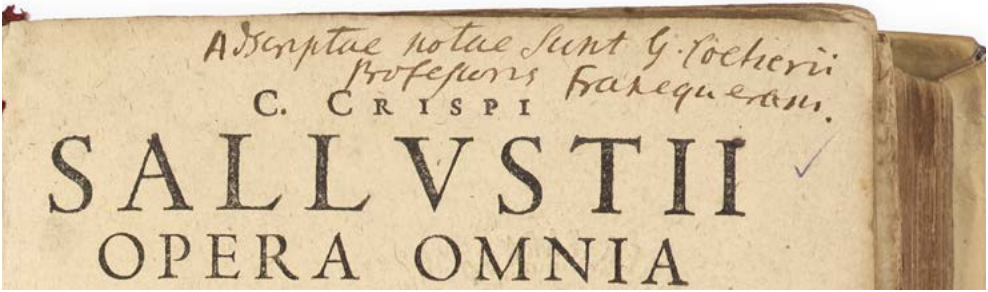 Adscriptae notae sunt G. Coetierii
Professoris Franequerani.
C. CRISPI
SALLVSTII
OPERA OMNIA